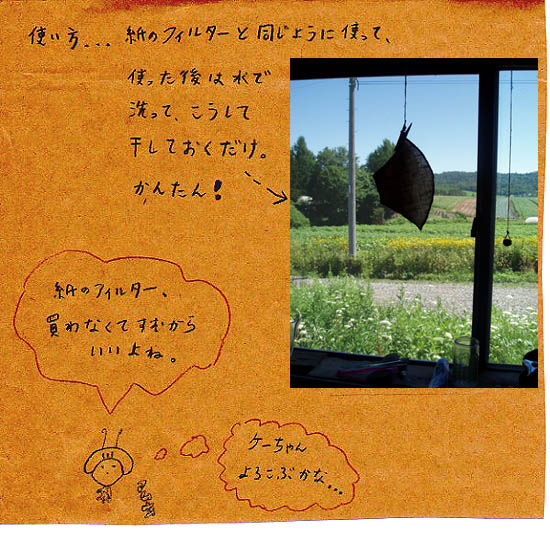 使い方... 紙のフィルターと同じように使って、
使った後は水で
洗って、こうして
干しておくだけ。
かんたん！
紙のフィルター、
買わなくてすむから
いいよね。
ケーちゃん
よろこぶかな...